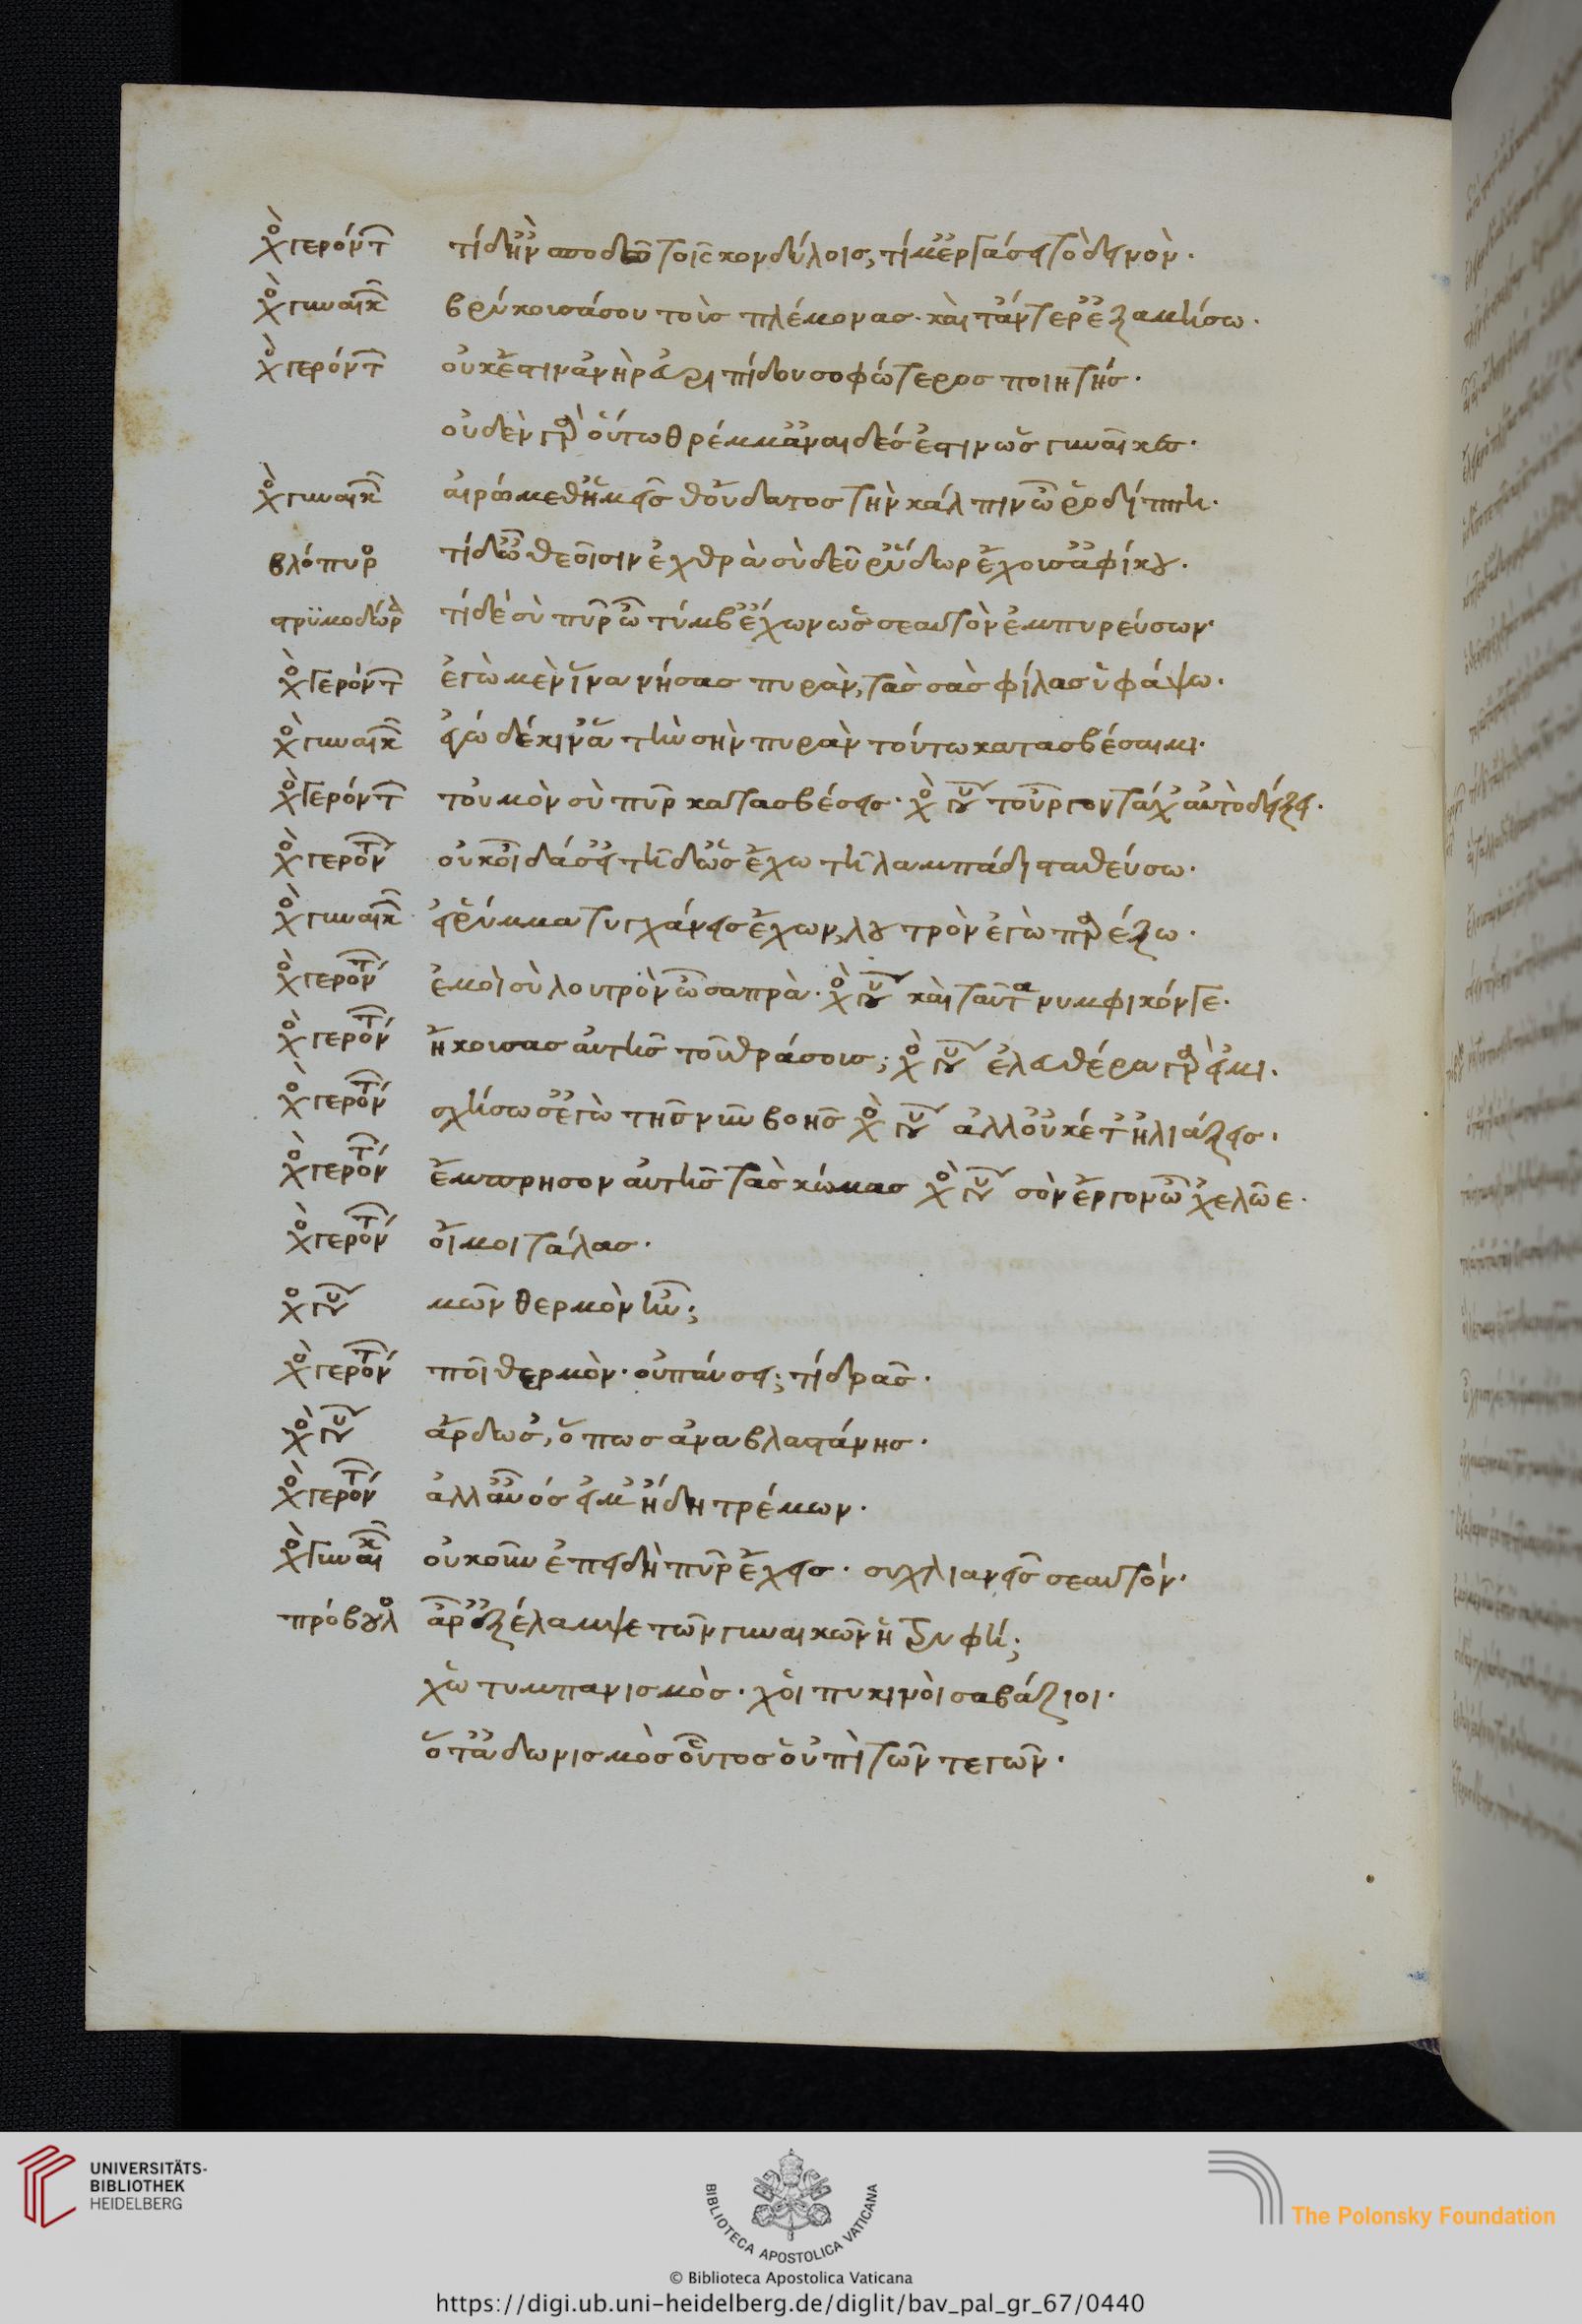 χο γερόντ τί δ' ἢν σποδῶ τοῖς κονδύλοις; τί μ' ἐργάσει τὸ δεινὸν.
χο γυναικ βρύκουσά σου τοὺς πλέμονας· καὶ τἄντερ' ἐξαμήσω.
χο γερόντ οὐκ ἔστιν ἀνὴρ εὐριπίδου σοφώτερος ποιητής.
οὐδὲν γὰρ οὕτω θρέμμ' ἀναιδές ἐστιν ὡς γυναῖκες.
χο γυναικ αἱρώμεθ' ἡμεῖς θοὔδατος τὴν κάλπιν ὦ ῥοδίππη.
βλόπυρ τί δ' ὦ θεοῖσιν ἐχθρὰ σὺ δεῦρ' ὕδωρ ἔχουσ' ἀφίκου.
στρϋμοδώρ τί δὲ σὺ πῦρ ὦ τύμβ' ἔχων ὡς σεαυτὸν ἐμπυρεύσων·
χο γερόντ ἐγὼ μὲν ἵνα νήσας πυρὰν, τὰς σὰς φίλας ὑφάψω.
χο γυναικ ἐγὼ δέ κ' ἵν' ἂν τὴν σὴν πυρὰν τούτω κατασβέσαιμι.
χο γερόντ τοὐμὸν σὺ πῦρ κατασβέσεις· χο γυ τοὖργον τάχ' αὐτὸ δείξει.
χο γερόντ οὐκ οἶδά σ' εἰ τῆδ' ὡς ἔχω τῆ λαμπάδι σταθεύσω.
χο γυναικ εἰ ῥύμμα τυγχάνεις ἔχων, λουτρὸν ἐγὼ παρέξω.
χο γερόντ ἐμοὶ σὺ λουτρὸν ὦ σαπρὰ· χο γυ καὶ ταῦτα νυμφικόν γε.
χο γερόντ ἤκουσας αὐτῆς τοῦ θράσους; χο γυ ἐλευθέρα γὰρ εἰμι.
χο γερόντ σχήσω σ' ἐγὼ τῆς νῦν βοῆς χο γυ ἀλλ' οὐκέτ' ἡλιάζεις.
χο γερόντ ἔμπρησον αὐτῆς τὰς κόμας χο γυ σὸν ἔργον ὦ 'χελῶε.
χο γερόντ οἴμοι τάλας.
χο γυ μῶν θερμὸν ἦν;
χο γερόντ ποῖ θερμὸν· οὐ παύσει; τί δρᾶς.
χο γυ ἄρδω σ', ὅπως ἀναβλαστάνης.
χο γερόντ ἀλλ' αὖός εἰμ' ἤδη τρέμων.
χο γυναικ οὐκοῦν ἐπειδὴ πῦρ ἔχεις· συ χλιανεῖς σεαυτόν.
πρόβουλ ἆρ' ἐξέλαμψε τῶν γυναικῶν ἡ τρυφή;
χὠ τυμπανισμὸς· χοἱ πυκινοὶ σαβάζιοι.
ὅ τ' ἀδωνισμὸς οὗτος οὑπὶ τῶν τεγῶν.
UNIVERSITÄTS-
BIBLIOTHEK
HEIDELBERG
BIBLIOTECA APOSTOLICA VATICANA
The Polonsky Foundation
© Biblioteca Apostolica Vaticana
https://digi.ub.uni-heidelberg.de/diglit/bav_pal_gr_67/0440